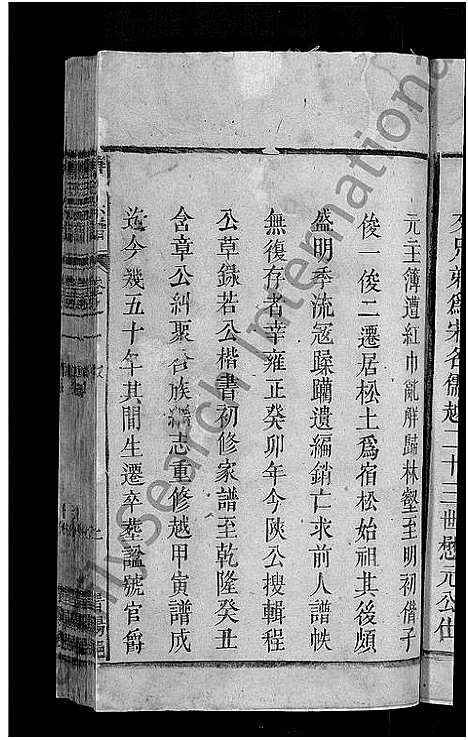 文兄弟爲宋名儒越二十三世懋元公仕
元主簿遭紅巾亂辟歸林壑至明初偕子
俊一俊二遷居松土爲宿松始祖其後頗
盛明季流寇蹂躪遺編銷亡求前人譜帙
無復存者幸雍正癸卯年今陝公搜輯程
公草錄若公楷書初修家譜至乾隆癸丑
含章公糾聚合族編志重修越甲寅譜成
迄今幾五十年其間生遷卒塟諡號官爵
Search International